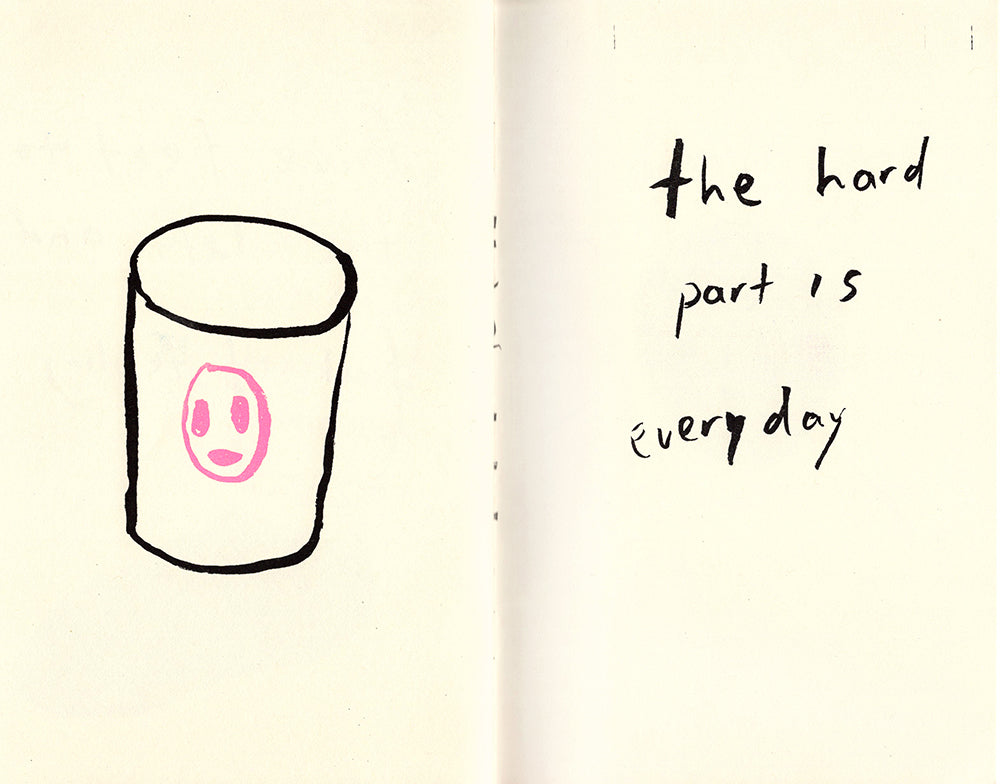 the hard
part is
every day